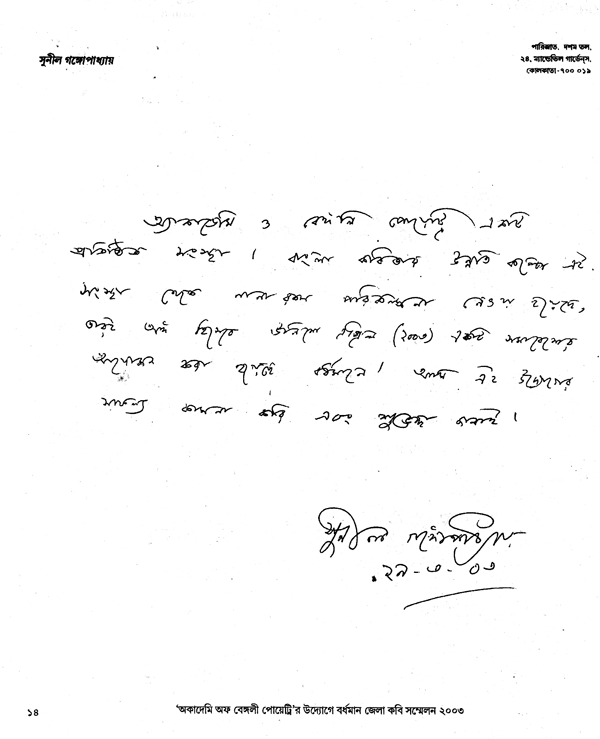 সুনীল গঙ্গোপাধ্যায়
পারিজাত, দশম তল,
২৪, ম্যান্ডেভিল গার্ডেনস,
কোলকাতা-৭০০ ০১৯
অ্যাকাডেমি ও বেঙ্গলি পোয়েট্রি একটি
প্রতিষ্ঠিত সংস্থা । বাংলা কবিতার উন্নতি কল্পে এই
সংস্থা থেকে নানা রকম পরিকল্পনা নেওয়া হয়েছে,
তারই অঙ্গ হিসেবে উনিশে এপ্রিল (২০০৩) একটি সমাবেশের
আয়োজন করা হয়েছে বর্ধমানে । আমি এই উদ্যোগের
সাফল্য কামনা করি এবং শুভেচ্ছা জানাই ।
সুনীল গঙ্গোপাধ্যায়
২৯-৩-০৩
১৪
'অকাদেমি অফ বেঙ্গলী পোয়েট্রি'র উদ্যোগে বর্ধমান জেলা কবি সম্মেলন ২০০৩